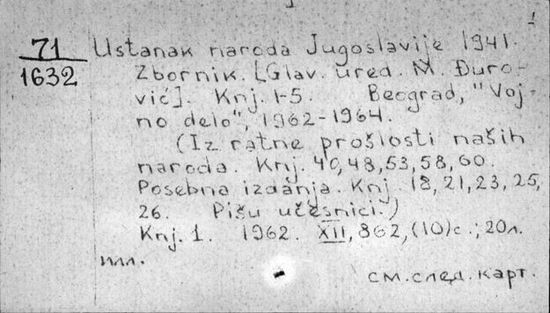 71
1632
Ustanak naroda Jugoslavije 1941.
Zbornik. [Glav. ured. M. Đuro-
vić]. Knj. 1-5. Beograd, "Voj-
no delo", 1962-1964.
(Iz ratne prošlosti naših
naroda. Knj. 40,48,53,58,60.
Posebna izdanja. Knj. 18,21,23,25,
26. Pišu učesnici.)
Knj. 1. 1962. XII, 862, (10)с.; 20л.
илл.
см. след. карт.